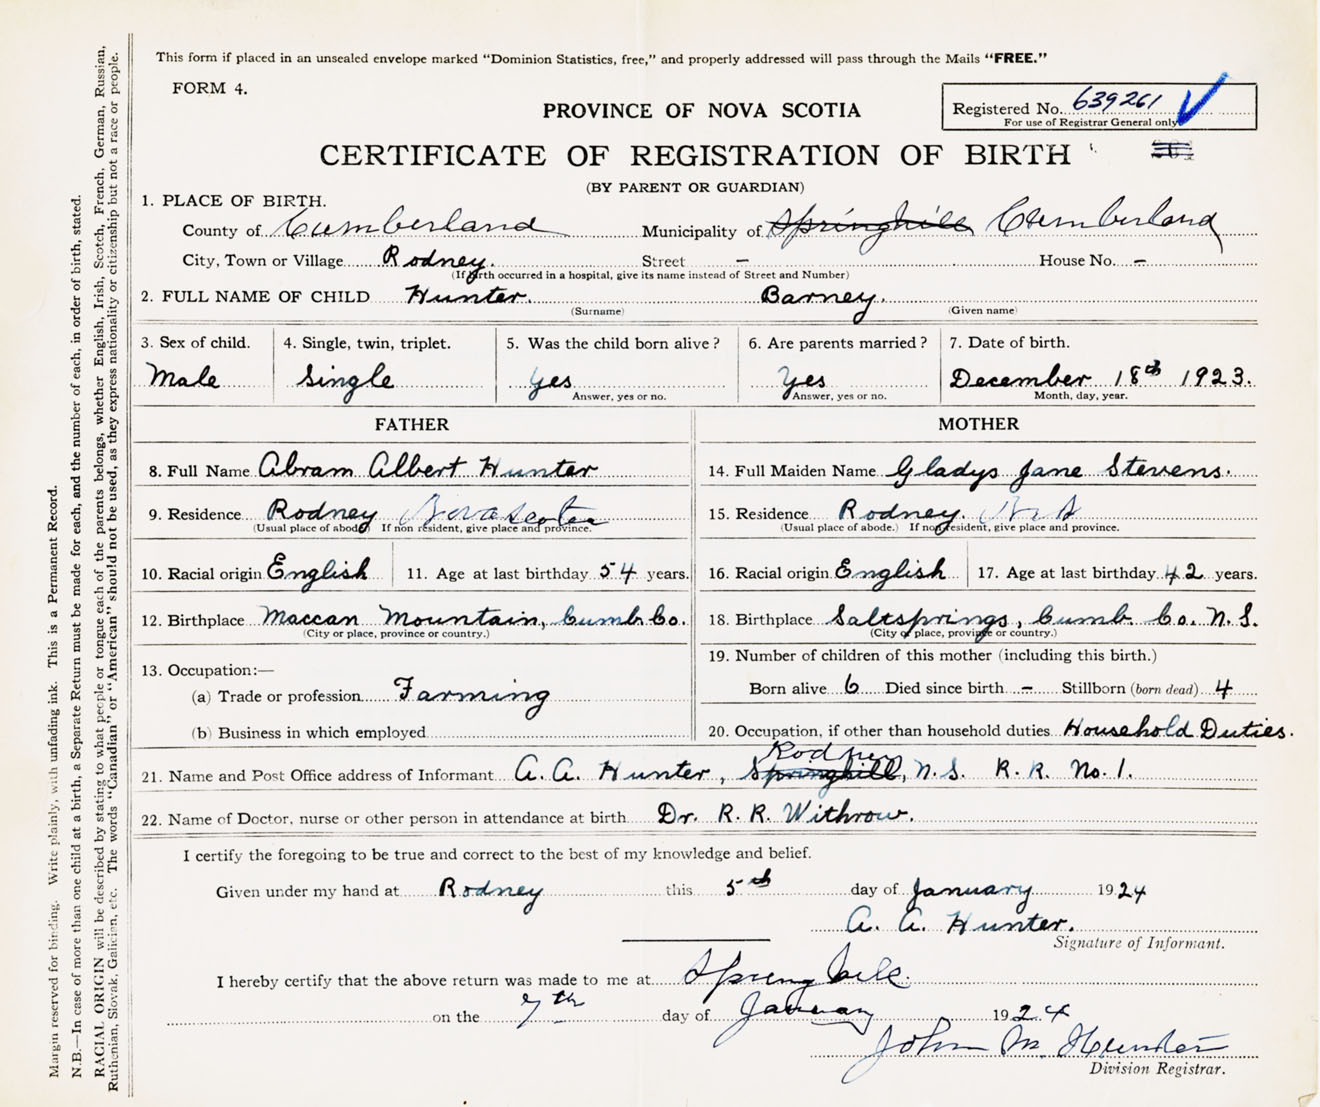 This form if placed in an unsealed envelope marked “Dominion Statistics, free,” and properly addressed will pass through the Mails “FREE.”
FORM 4.
Registered No. 639261
For use of Registrar General only
PROVINCE OF NOVA SCOTIA
CERTIFICATE OF REGISTRATION OF BIRTH
(BY PARENT OR GUARDIAN)
1. PLACE OF BIRTH.
County of Cumberland Municipality of Springhill Cumberland
City, Town or Village Rodney. Street – House No. –
(If birth occurred in a hospital, give its name instead of Street and Number)
2. FULL NAME OF CHILD Hunter. Barney.
(Surname) (Given name)
3. Sex of child. 4. Single, twin, triplet. 5. Was the child born alive? 6. Are parents married? 7. Date of birth.
Male Single Yes Yes December 18th 1923.
Answer, yes or no. Answer, yes or no. Month, day, year.
FATHER MOTHER
8. Full Name Abram Albert Hunter 14. Full Maiden Name Gladys Jane Stevens.
9. Residence Rodney Nova Scotia 15. Residence Rodney. N S
(Usual place of abode) If non resident, give place and province. (Usual place of abode.) If non resident, give place and province.
10. Racial origin English 11. Age at last birthday 54 years. 16. Racial origin English 17. Age at last birthday 42 years.
12. Birthplace Maccan Mountain, Cumb. Co. 18. Birthplace Saltsprings, Cumb. Co. N. S.
(City or place, province or country.) (City or place, province or country.)
13. Occupation:— 19. Number of children of this mother (including this birth.)
(a) Trade or profession Farming Born alive 6 Died since birth – Stillborn (born dead) 4
(b) Business in which employed 20. Occupation, if other than household duties Household Duties.
Rodney
21. Name and Post Office address of Informant A. A. Hunter, Springhill, N. S. R. R. No. 1.
22. Name of Doctor, nurse or other person in attendance at birth Dr. R. R. Withrow.
I certify the foregoing to be true and correct to the best of my knowledge and belief.
Given under my hand at Rodney this 5th day of January 1924
A. A. Hunter.
Signature of Informant.
I hereby certify that the above return was made to me at Springhill.
on the 7th day of January 1924
John M. Hunter
Division Registrar.
Margin reserved for binding. Write plainly, with unfading ink. This is a Permanent Record.
N.B.—In case of more than one child at a birth, a Separate Return must be made for each, and the number of each, in order of birth, stated.
RACIAL ORIGIN will be described by stating to what people or tongue each of the parents belongs, whether English, Irish, Scotch, French, German, Russian,
Ruthenian, Slovak, Galician, etc. The words “Canadian” or “American” should not be used, as they express nationality or citizenship but not a race or people.